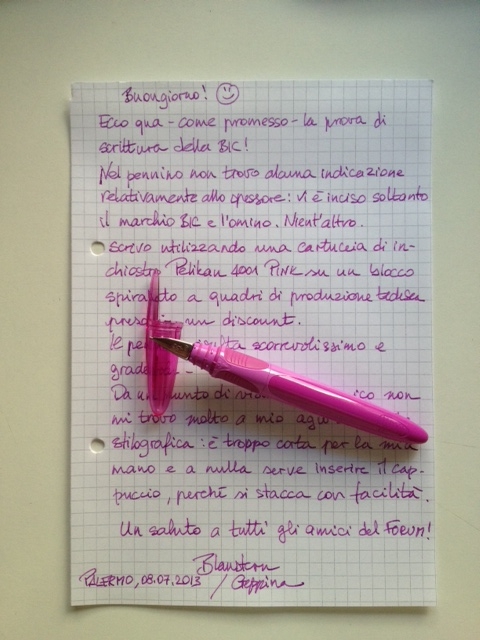 Buongiorno! ☺
Ecco qua - come promesso - la prova di
scrittura della BIC!
Nel pennino non trovo alcuna indicazione
relativamente allo spessore: vi è inciso soltanto
il marchio BIC e l'omino. Nient'altro.
Scrivo utilizzando una cartuccia di in-
chiostro Pelikan 4001 PINK su un blocco
spiralato a quadri di produzione tedesca
preso in un discount.
scorrevolissimo e
Da un punto di non
mi trovo molto a mio
stilografica: è troppo corta per la mia
mano e a nulla serve inserire il cap-
puccio, perché si stacca con facilità.
Un saluto a tutti gli amici del FORUM!
Blaustern
PALERMO, 08.07.2013 / Geppina